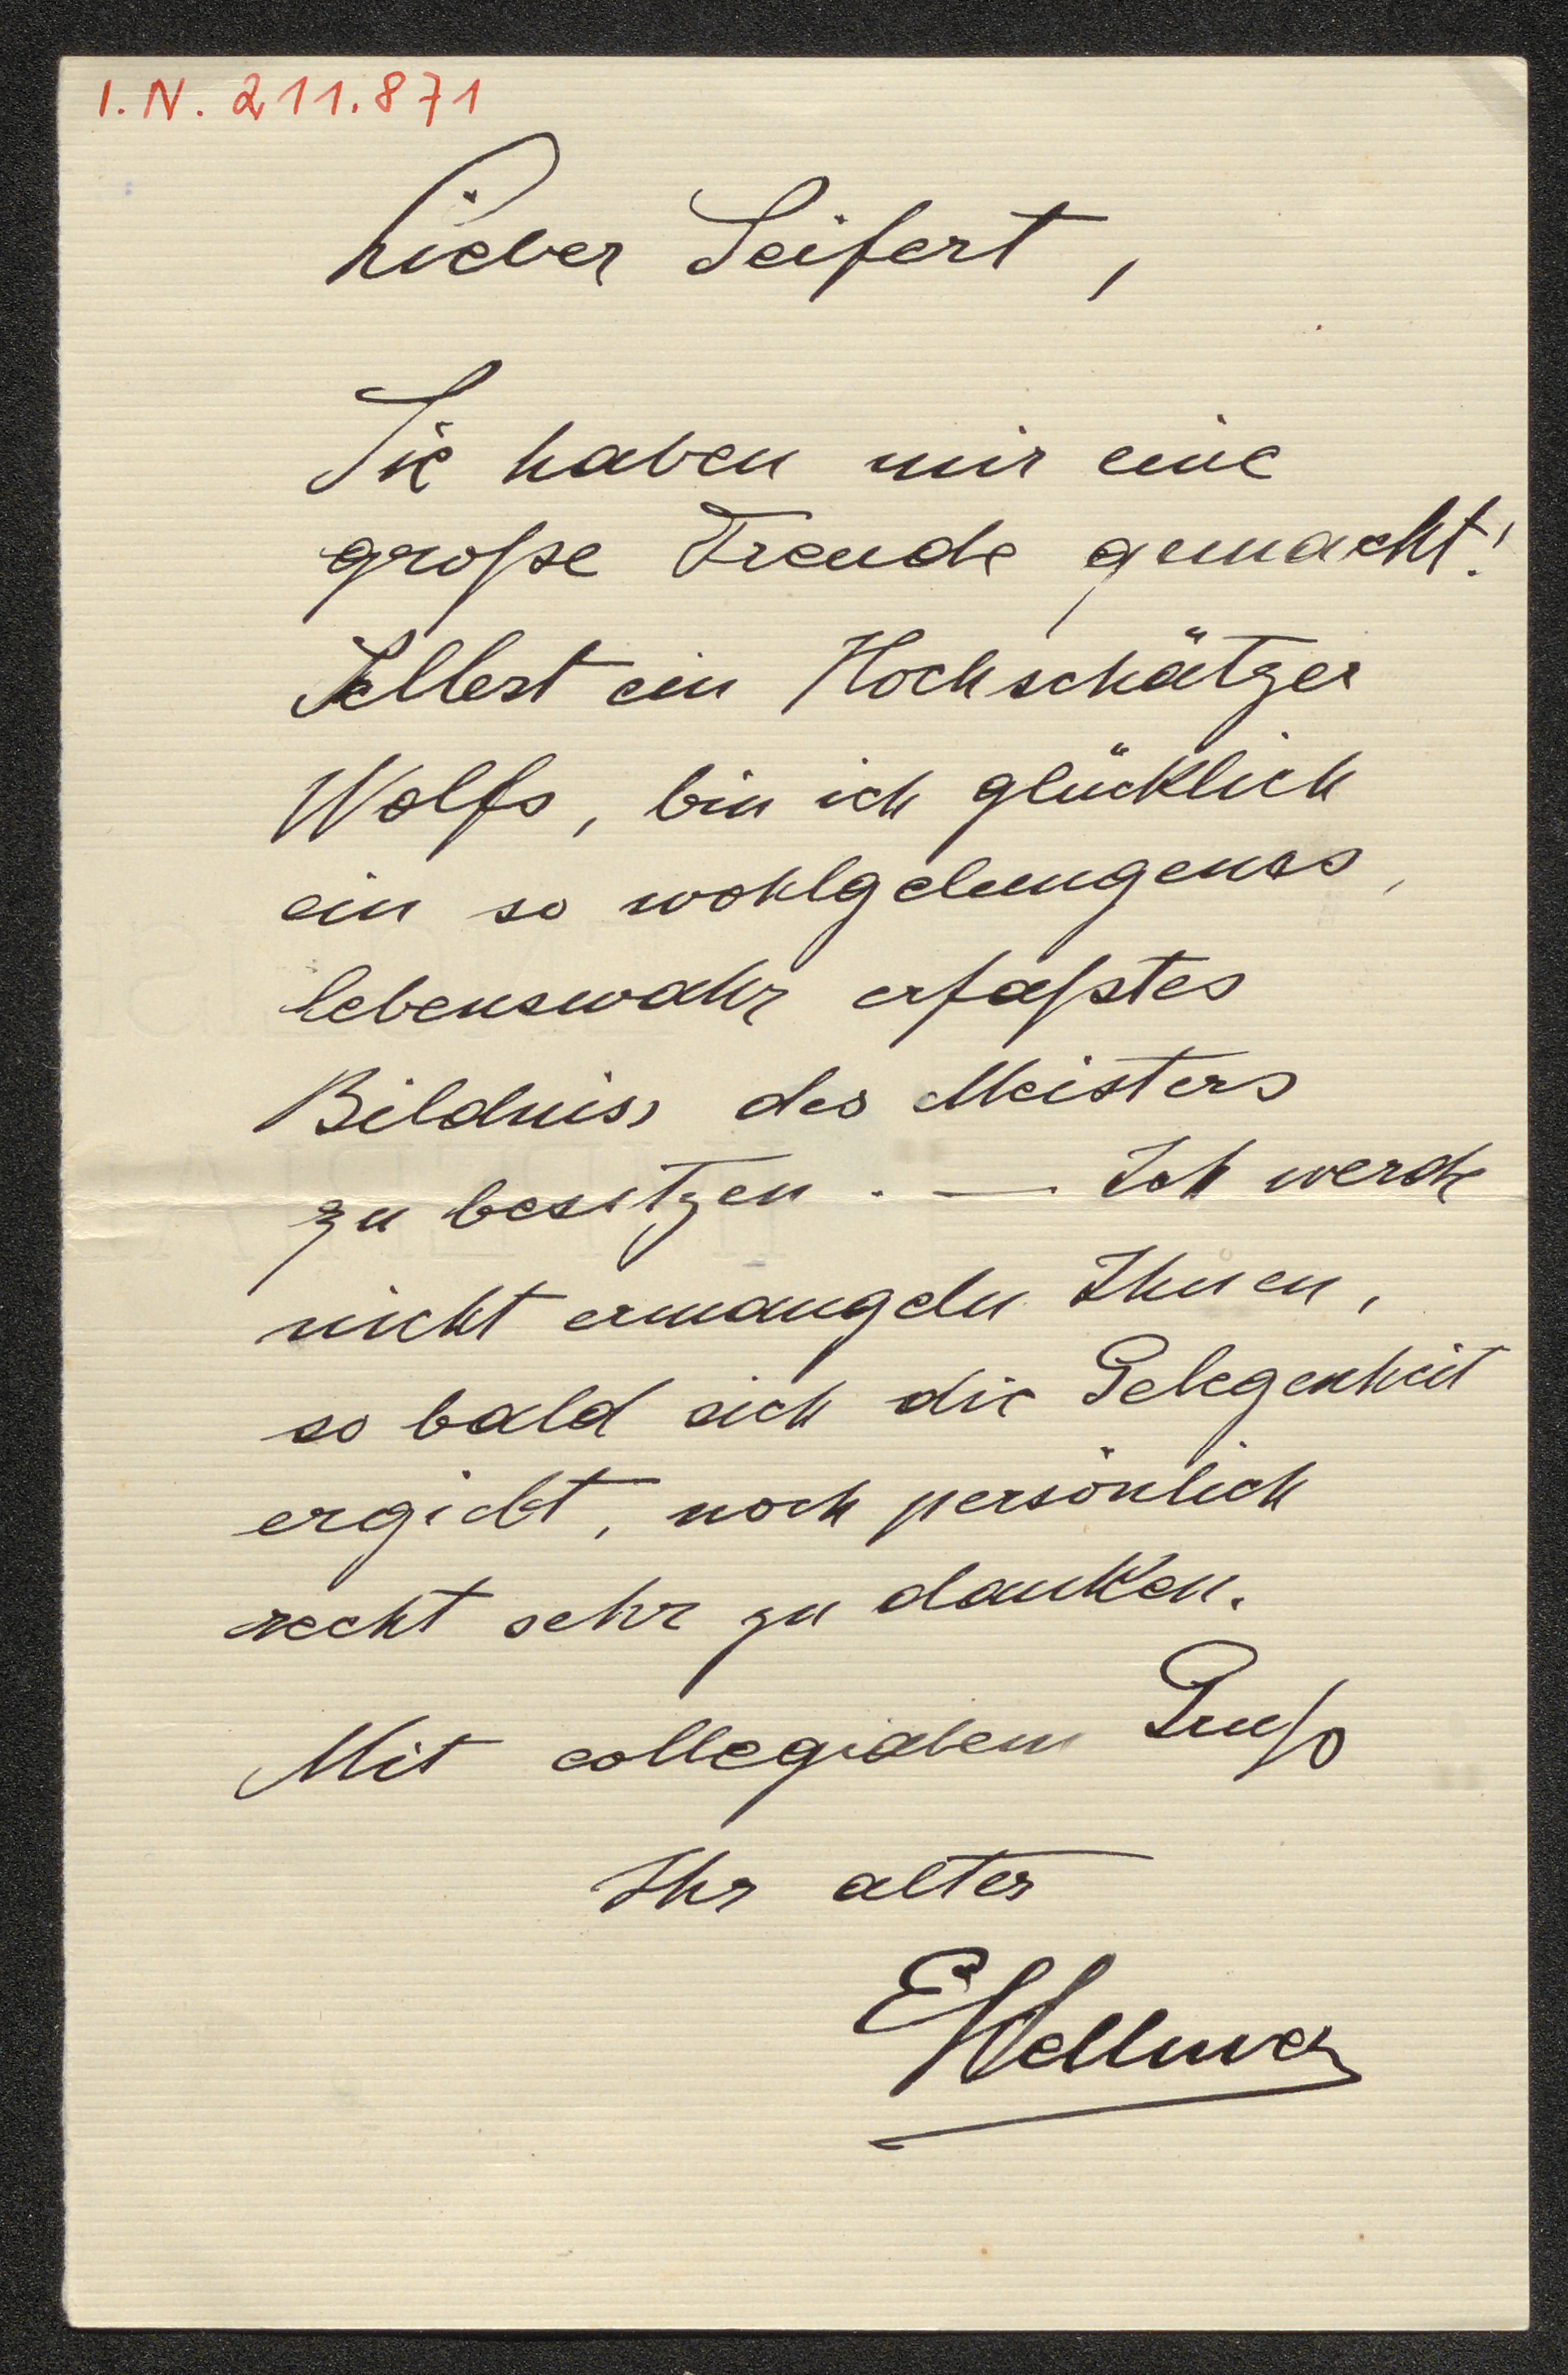 I. N. 211.871
Lieber Seifert,
Sie haben mir eine
große Freude gemacht!
Selbest ein Hochschätzer
Wolfs, bin ich glücklich
ein so wohlgelungenes,
lebenswahr erfaßtes
Bildniss des Meisters
zu besitzen. — Ich werde
nicht ermangeln Ihnen,
so bald sich die Gelegenheit
ergiebt, noch persönlich
recht sehr zu danken.
Mit collegialem Gruß
Ihr alter
EHellmer